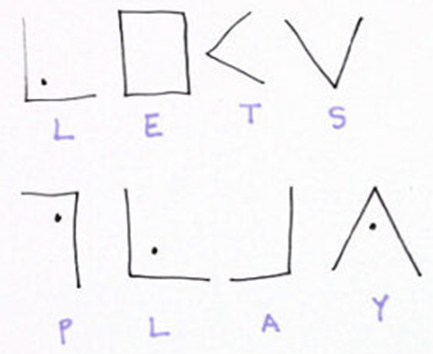 L E T S
P L A Y